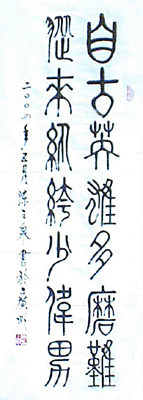 自古英雄多磨難
從來紈絝少偉男
二〇〇四年五月